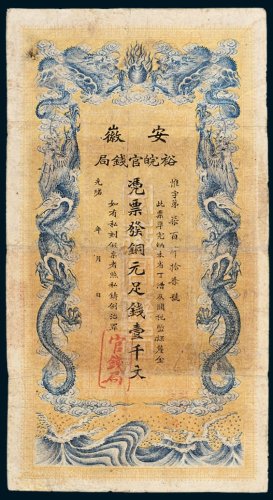 安徽
裕皖官錢局
惟字第柒百 拾柒號
此票準完納本省丁漕及關稅鹽課釐金
憑票發銅元足錢壹千文
如有私刻假票者照私鑄例治罪
光緒 年 月 日
官錢局